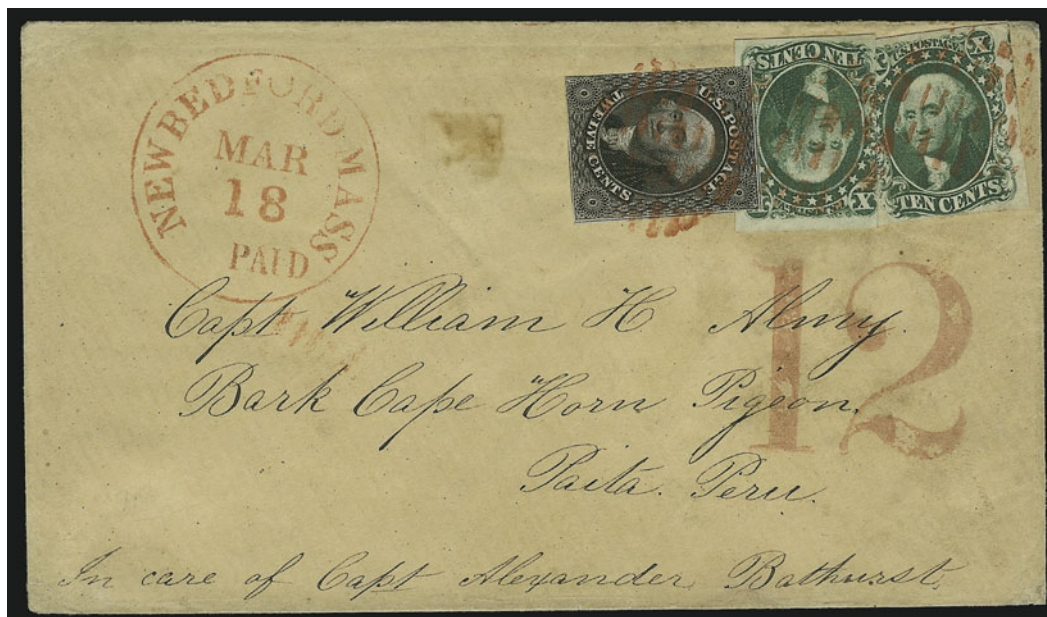 NEW BEDFORD MASS
MAR
18
PAID
TWELVE CENTS
U.S. POSTAGE
TEN CENTS
X
U.S. POSTAGE
X
TEN CENTS
12
Capt William H Almy.
Bark Cape Horn Pigeon,
Paita. Peru.
In care of Capt Alexander Bathurst,